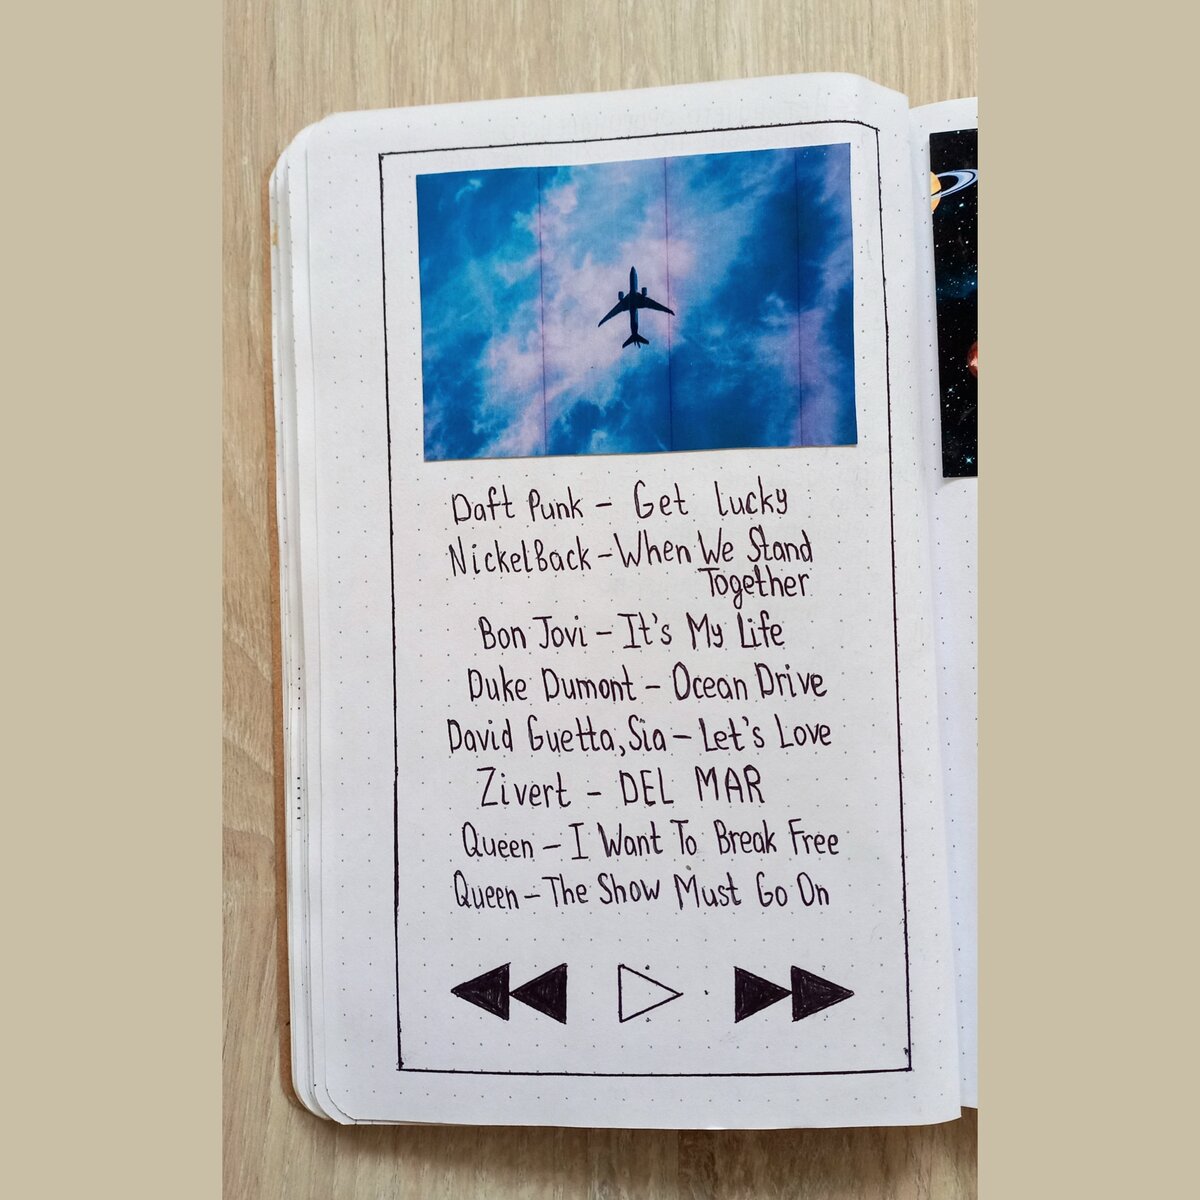 Daft Punk – Get lucky
Nickelback – When We Stand
Together
Bon Jovi – It's My Life
Duke Dumont – Ocean Drive
David Guetta, Sia – Let's Love
Zivert – DEL MAR
Queen – I Want To Break Free
Queen – The Show Must Go On